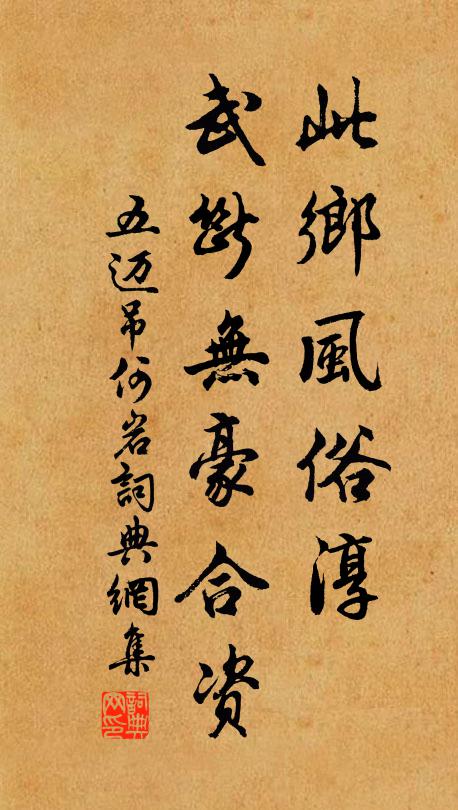 此鄉風俗淳
武斷無豪合資
五迈吊何岩詞典網集
詞典网印